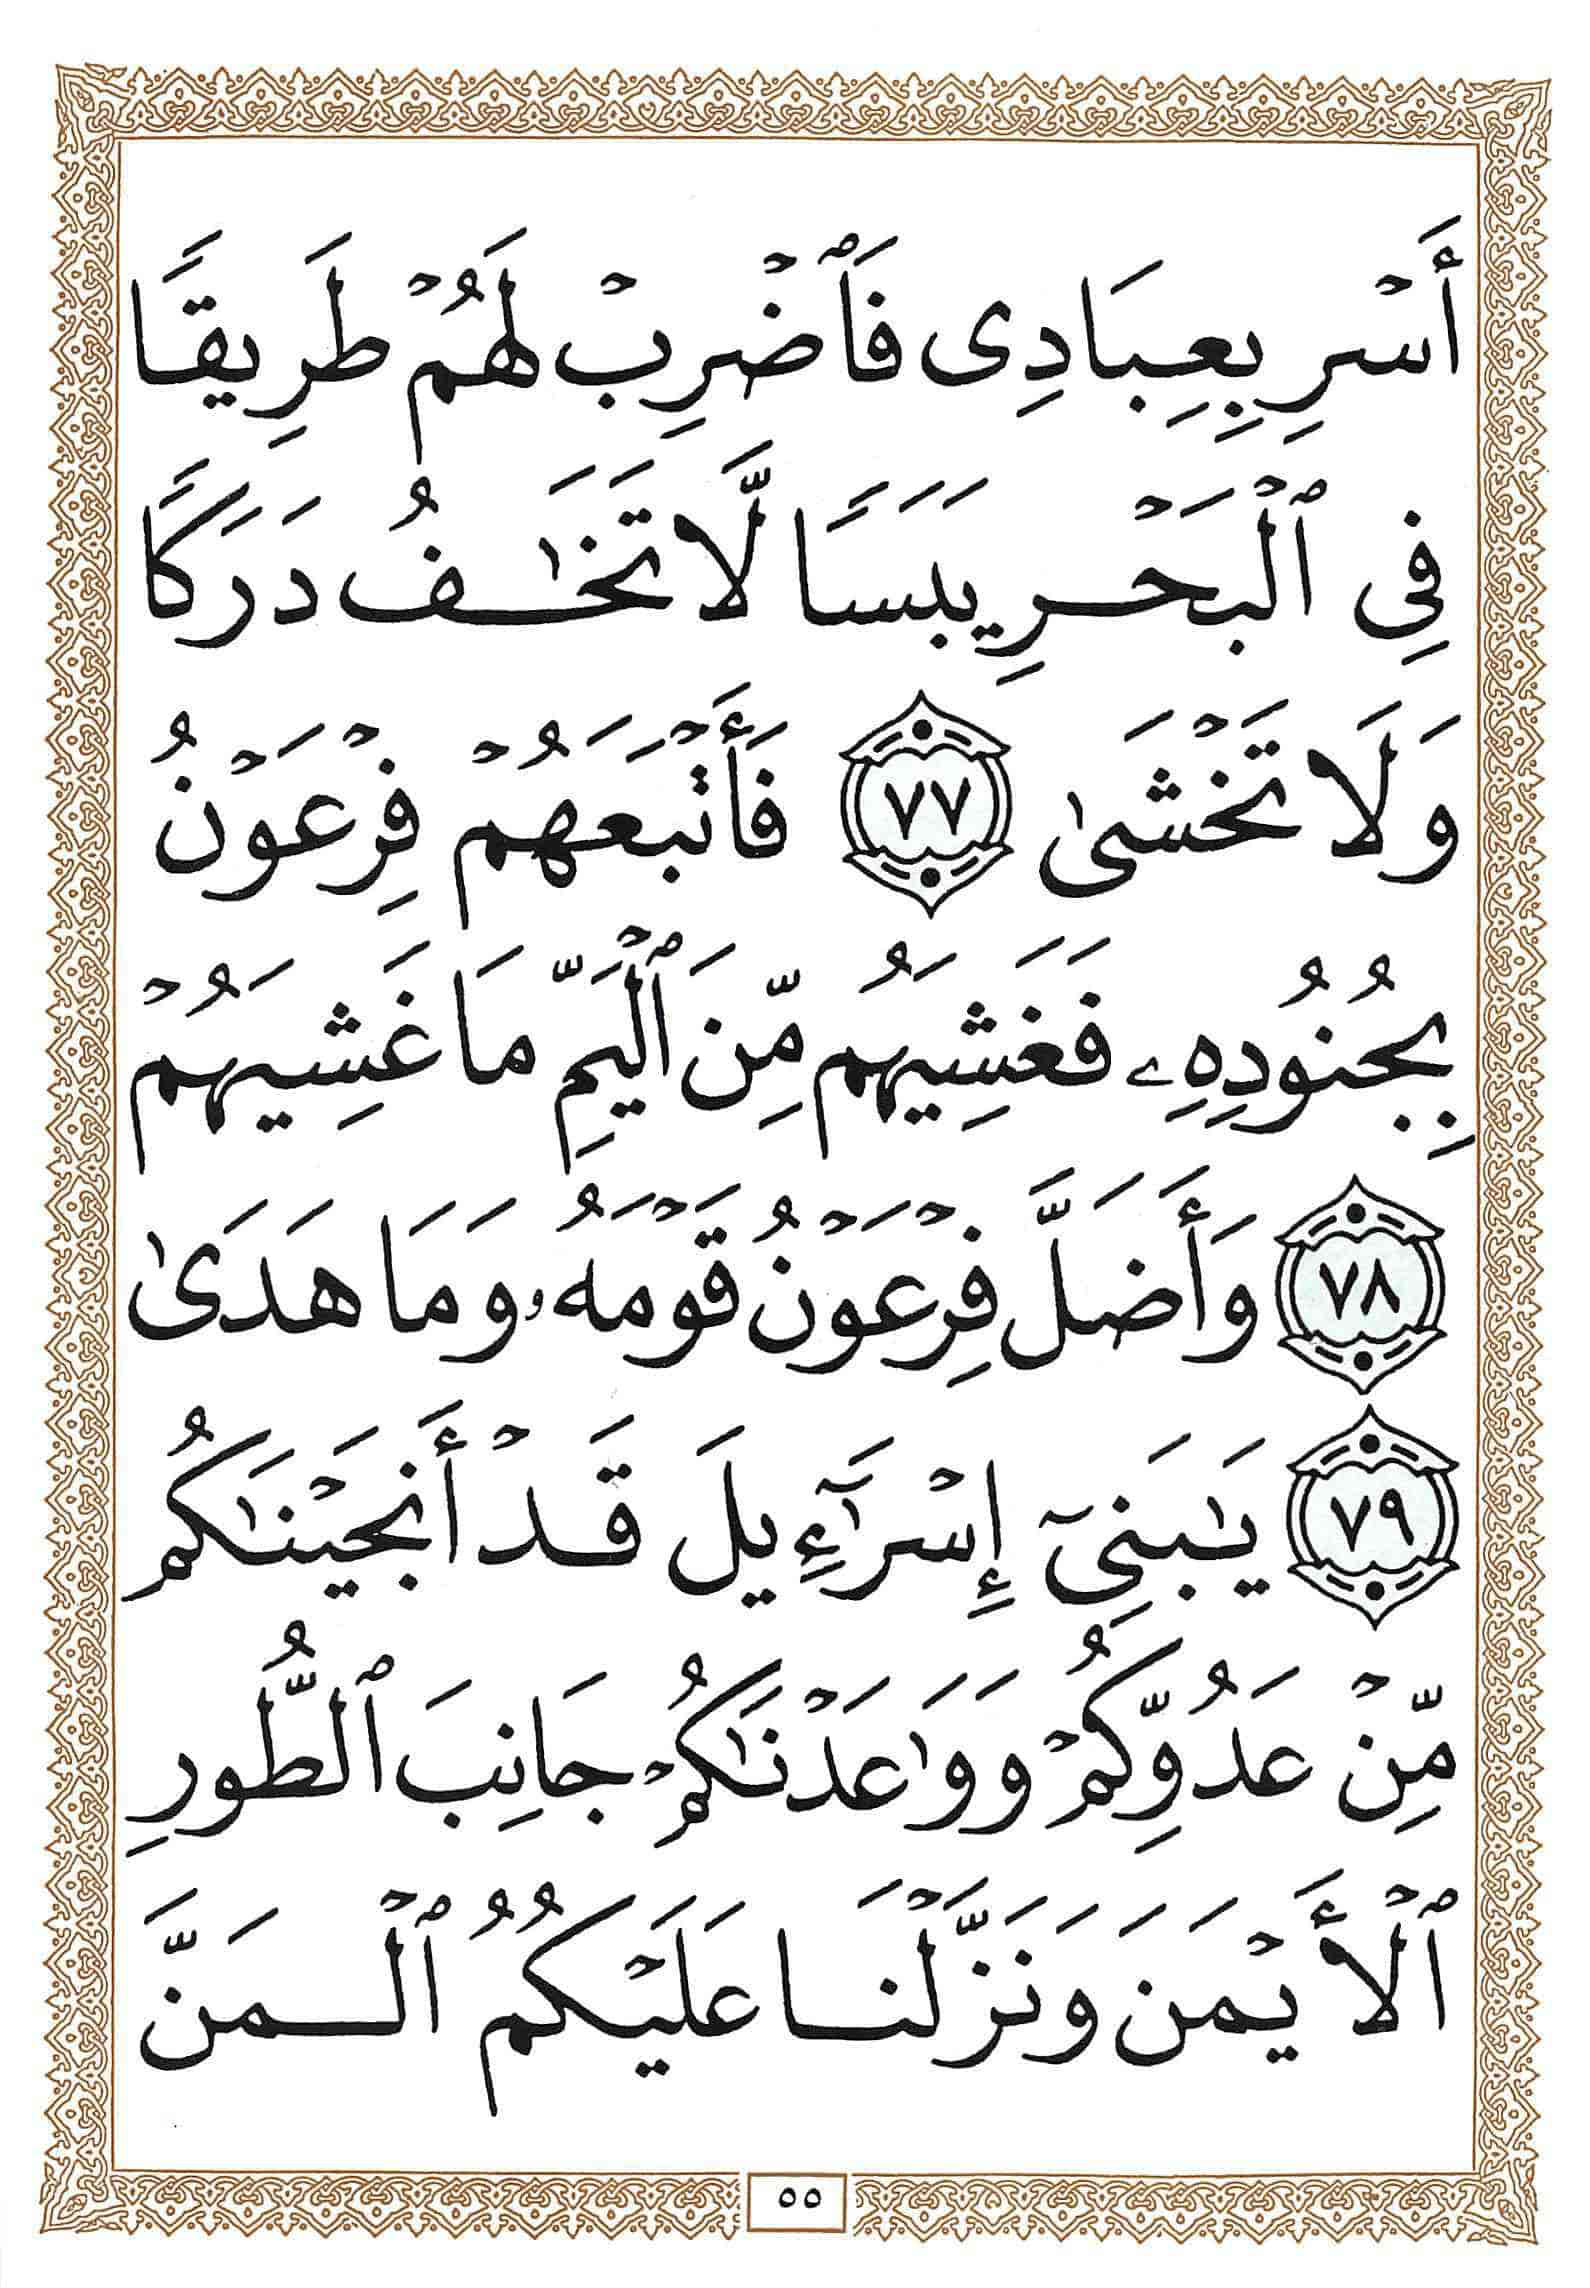 أَسْرِ بِعِبَادِى فَٱضْرِبْ لَهُمْ طَرِيقًا
فِى ٱلْبَحْرِ يَبَسًا لَّا تَخَٰفُ دَرَكًا
وَلَا تَخْشَىٰ ٧٧ فَأَتْبَعَهُمْ فِرْعَوْنُ
بِجُنُودِهِۦ فَغَشِيَهُم مِّنَ ٱلْيَمِّ مَا غَشِيَهُمْ
٧٨ وَأَضَلَّ فِرْعَوْنُ قَوْمَهُۥ وَمَا هَدَىٰ
٧٩ يَٰبَنِىٓ إِسْرَٰٓءِيلَ قَدْ أَنجَيْنَٰكُم
مِّنْ عَدُوِّكُمْ وَوَٰعَدْنَٰكُمْ جَانِبَ ٱلطُّورِ
ٱلْأَيْمَنَ وَنَزَّلْنَا عَلَيْكُمُ ٱلْمَنَّ
٥٥